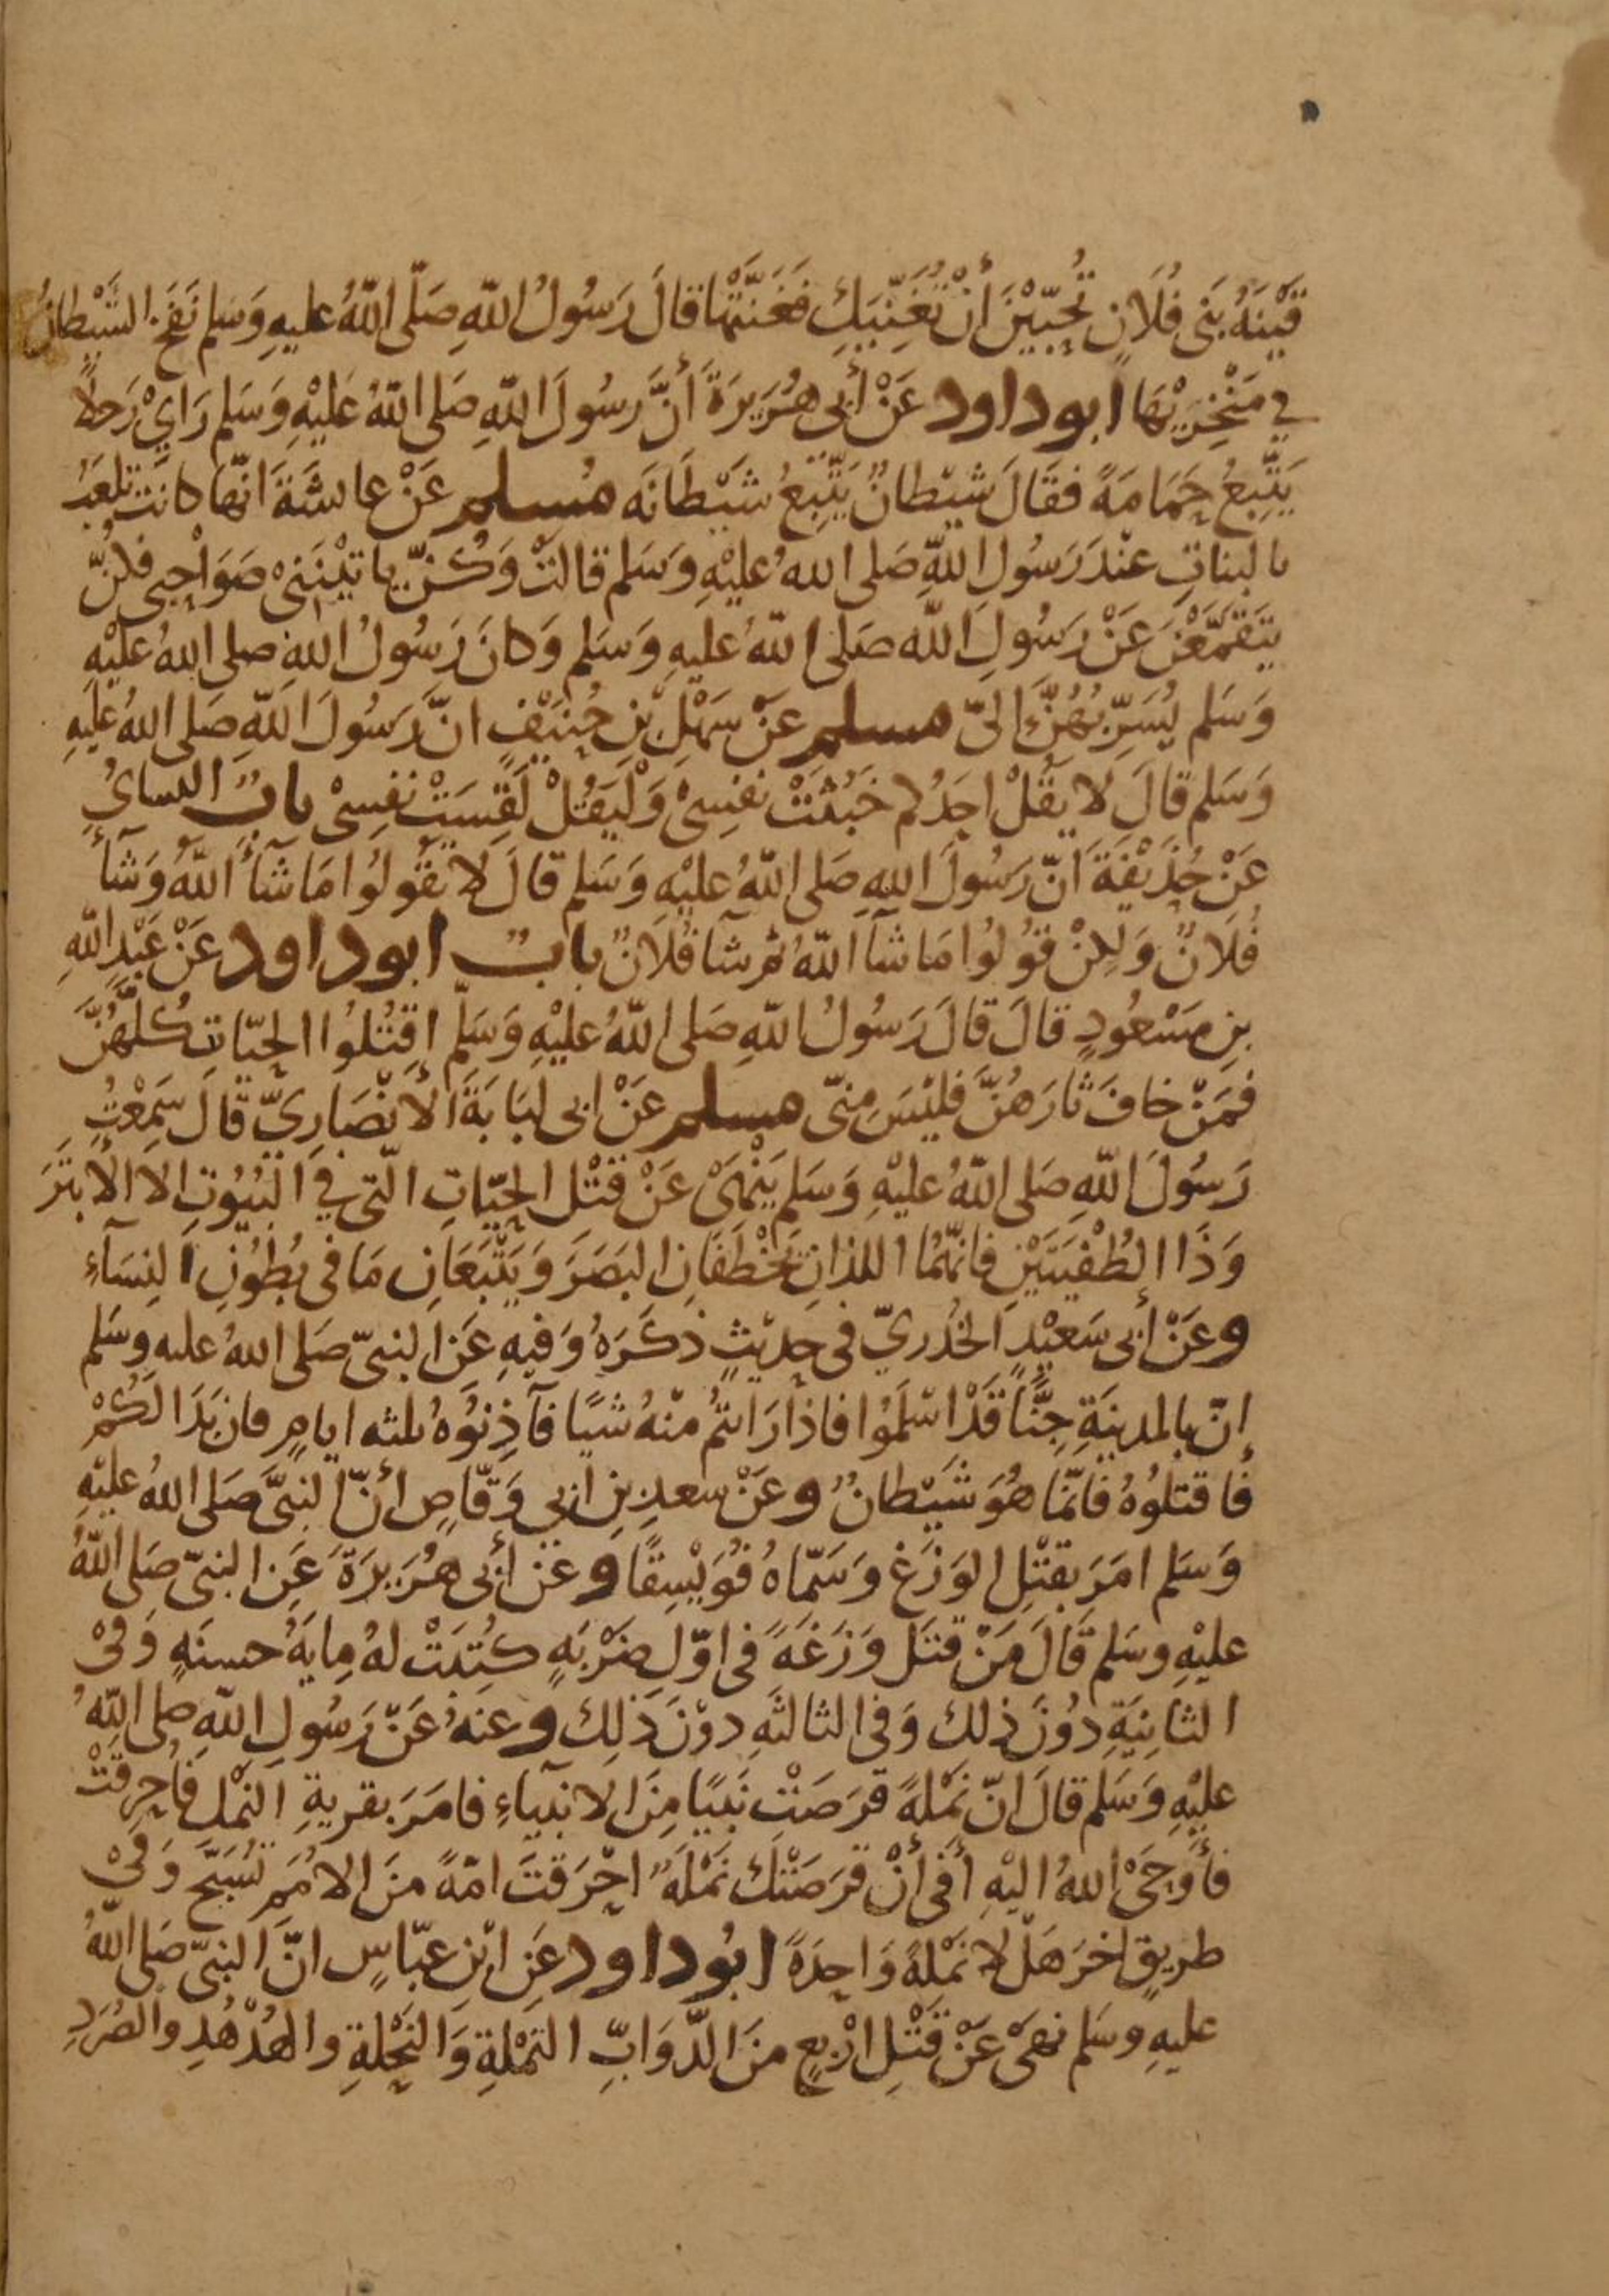 قَيْنَةُ بَنِى فُلَانٍ تُحِبِّيْنَ أَنْ تُغَنِّيَكِ فَغَنَّتْهَا قَالَ رَسُولُ اللّهِ صَلّى اللّهُ عليهِ وَسَلم نَفَخَ الشَّيْطانُ
في مَنْخِرَيْهَا ابو داود عَنْ أَبى هُرَيرَةَ أَنَّ رَسُولَ اللّهِ صَلى اللّهُ عَليْهِ وَسَلم رَايْ رَجلًا
يَتَّبِعُ حَمَامَةً فَقَالَ شَيْطانٌ يَتَّبِعُ شَيْطَانَه مُسلم عَنْ عائشَةَ انّها كانَت تلعَبُ
بالبناتِ عنْدَ رَسُولِ اللّهِ صَلى اللهُ عليْهِ وَسَلم قالتْ وَكُنَّ ياتيْنَنِىْ صَوَاحِبى فكُنَّ
يتَقَمَّعْنَ عَنْ رَسُولِ اللّه صَلى اللّهُ عليهِ وَسَلم وَكانَ رَسُولُ اللهِ صلى اللهُ عليْهِ
وَسَلم يُسَرِّبُهُنَّ إلىّ مسلم عَنْ سَهْلِ بْنِ حُنَيْفٍ انَّ رَسُولَ اللّهِ صَلى اللهُ عَليهِ
وَسَلم قالَ لا يقُلْ احَدُكم خَبُثَتْ نفسِىْ وَلْيَقُلْ لَقِسَتْ نفسِىْ بابٌ النسايُ
عَنْ حُذَيْفَةَ انّ رَسُولَ اللهِ صَلى اللّهُ عليْهِ وَسَلم قالَ لا تقُولُوا مَا شآءَ اللّهُ وَشآءَ
فُلَانٌ وَلكِنْ قوُلوُا مَا شآءَ اللّهُ ثم شآ فُلَانٌ بابٌ ابو داود عَنْ عَبْدِ اللّهِ
بنِ مَسْعُودٍ قالَ قالَ رَسُولُ اللّهِ صَلى اللّهُ عليْهِ وَسَلّم اقتُلُوا الحيّاتِ كُلَّهُنَّ
فمَنْ خافَ ثارَهُنَّ فليْسَ مِنّى مسلم عَنْ ابى لبَابَةَ الأنْصَارِيّ قالَ سَمِعْتُ
رَسُولَ اللّهِ صَلى اللّهُ عليْهِ وَسَلم يَنْهَىْ عَنْ قَتْلِ الحيّاتِ الّتى في البُيُوتِ الا الأبتَرَ
وَذَا الطُفْيَتَيْنِ فانّهُمَا اللذانِ يَخْطَفَانِ البَصَرَ وَيَتَّبَعَانِ مَا فى بُطُوْنِ النِسَآءِ
وعَنْ أَبى سَعيْدٍ الخُدريّ فى حديثٍ ذكَرَهُ وَفيهِ عَنِ النبىّ صَلى اللهُ عليه وسَلم
إنّ بالمدينَةِ جِنًّا قَدْ اسْلَمُوا فاذَا رَايتمُ منْهُ شيًا فآذِنوُهُ ثلثه ايامٍ فان بَدَا لَكُمْ
فَاقتلوُهُ فانّمَا هُوَ شَيْطانٌ وعَنْ سعدِ بنِ ابي وَقّاصٍ أنّ النبىَّ صَلى اللهُ عليْهِ
وَسَلم امَرَ بقتْلِ الوَزَغِ وَسَمّاهُ فُوَيْسِقًا وعَنْ أَبى هُرَيرَةَ عَنِ النبىّ صَلى اللّهُ
عليْهِ وسَلم قَالَ مَنْ قتَل وَزَغَةً فى اوّلِ ضَرْبَةٍ كُتِبَتْ لهُ مِايةُ حسنَةٍ وَفىْ
الثانِيَةِ دُوْنَ ذلك وَفى الثالثَهِ دوْنَ ذلِك وعنهُ عَنْ رَسُولِ اللّهِ صلى اللّهُ
عليْهِ وَسَلم قالَ انّ نمْلةً قرَصَتْ نَبيًّا مِنَ الانبيآءِ فامَرَ بقريةِ النمْل فاُحرِقتْ
فأَوحَىْ اللهُ اليْهِ أَفى أَنْ قرَصَتْكَ نَمْلَةٌ احْرَقتَ امّةً منَ الامُمِ تُسَبّحَ وَفىْ
طريقٍ اخرَ هَلّا نمْلةً وَاحِدَةً ابُو داود عَنِ ابْنِ عبّاسٍ انَّ النبىّ صَلى اللّهُ
عليهِ وسَلم نهىْ عَنْ قَتْلِ ارْبعٍ منَ الدّوَابِّ النمْلةِ وَالنَحْلةِ والهُدْهُدِ والصُرَدِ